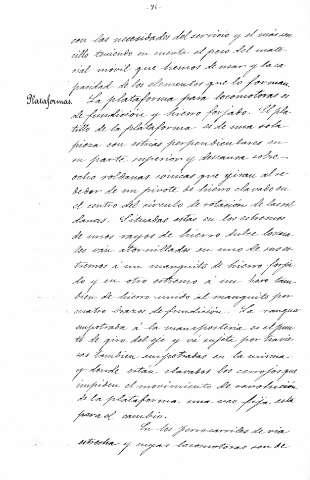 - 74 -
con las necesidades del servicio y el más sen
cillo teniendo en cuenta el peso del mate-
rial móvil que hemos de usar y la ca
pacidad de los elementos que lo forman.
Plataformas. La plataforma para locomotoras es
de fundición y hierro forjado. El pla-
tillo de la plataforma es de una sola
pieza con estrias perpendiculares en
su parte superior y descansa sobre
ocho roldanas cónicas que giran al re-
dedor de un pivote de hierro clavado en
el centro del circulo de rotación de las rol
danas. Situadas estas en los estremos
de unos rayos de hierro dulce los cua
les van atornillados en uno de sus es
tremos á un manguito de hierro forja
do y en otro estremo á un haro tam-
bien de hierro unido al manguito por
cuatro brazos de fundición. La rangua
empotrada á la mamposteria es el pun
to de giro del eje y vá sujeta por travie
sos tambien empotrados en la misma
y donde estan clavados los cerrojos que
impiden el movimiento de
de la plataforma una vez fija esta
para el cambio.
En los ferrocarriles de via
estrecha y cuyas locomotoras son de